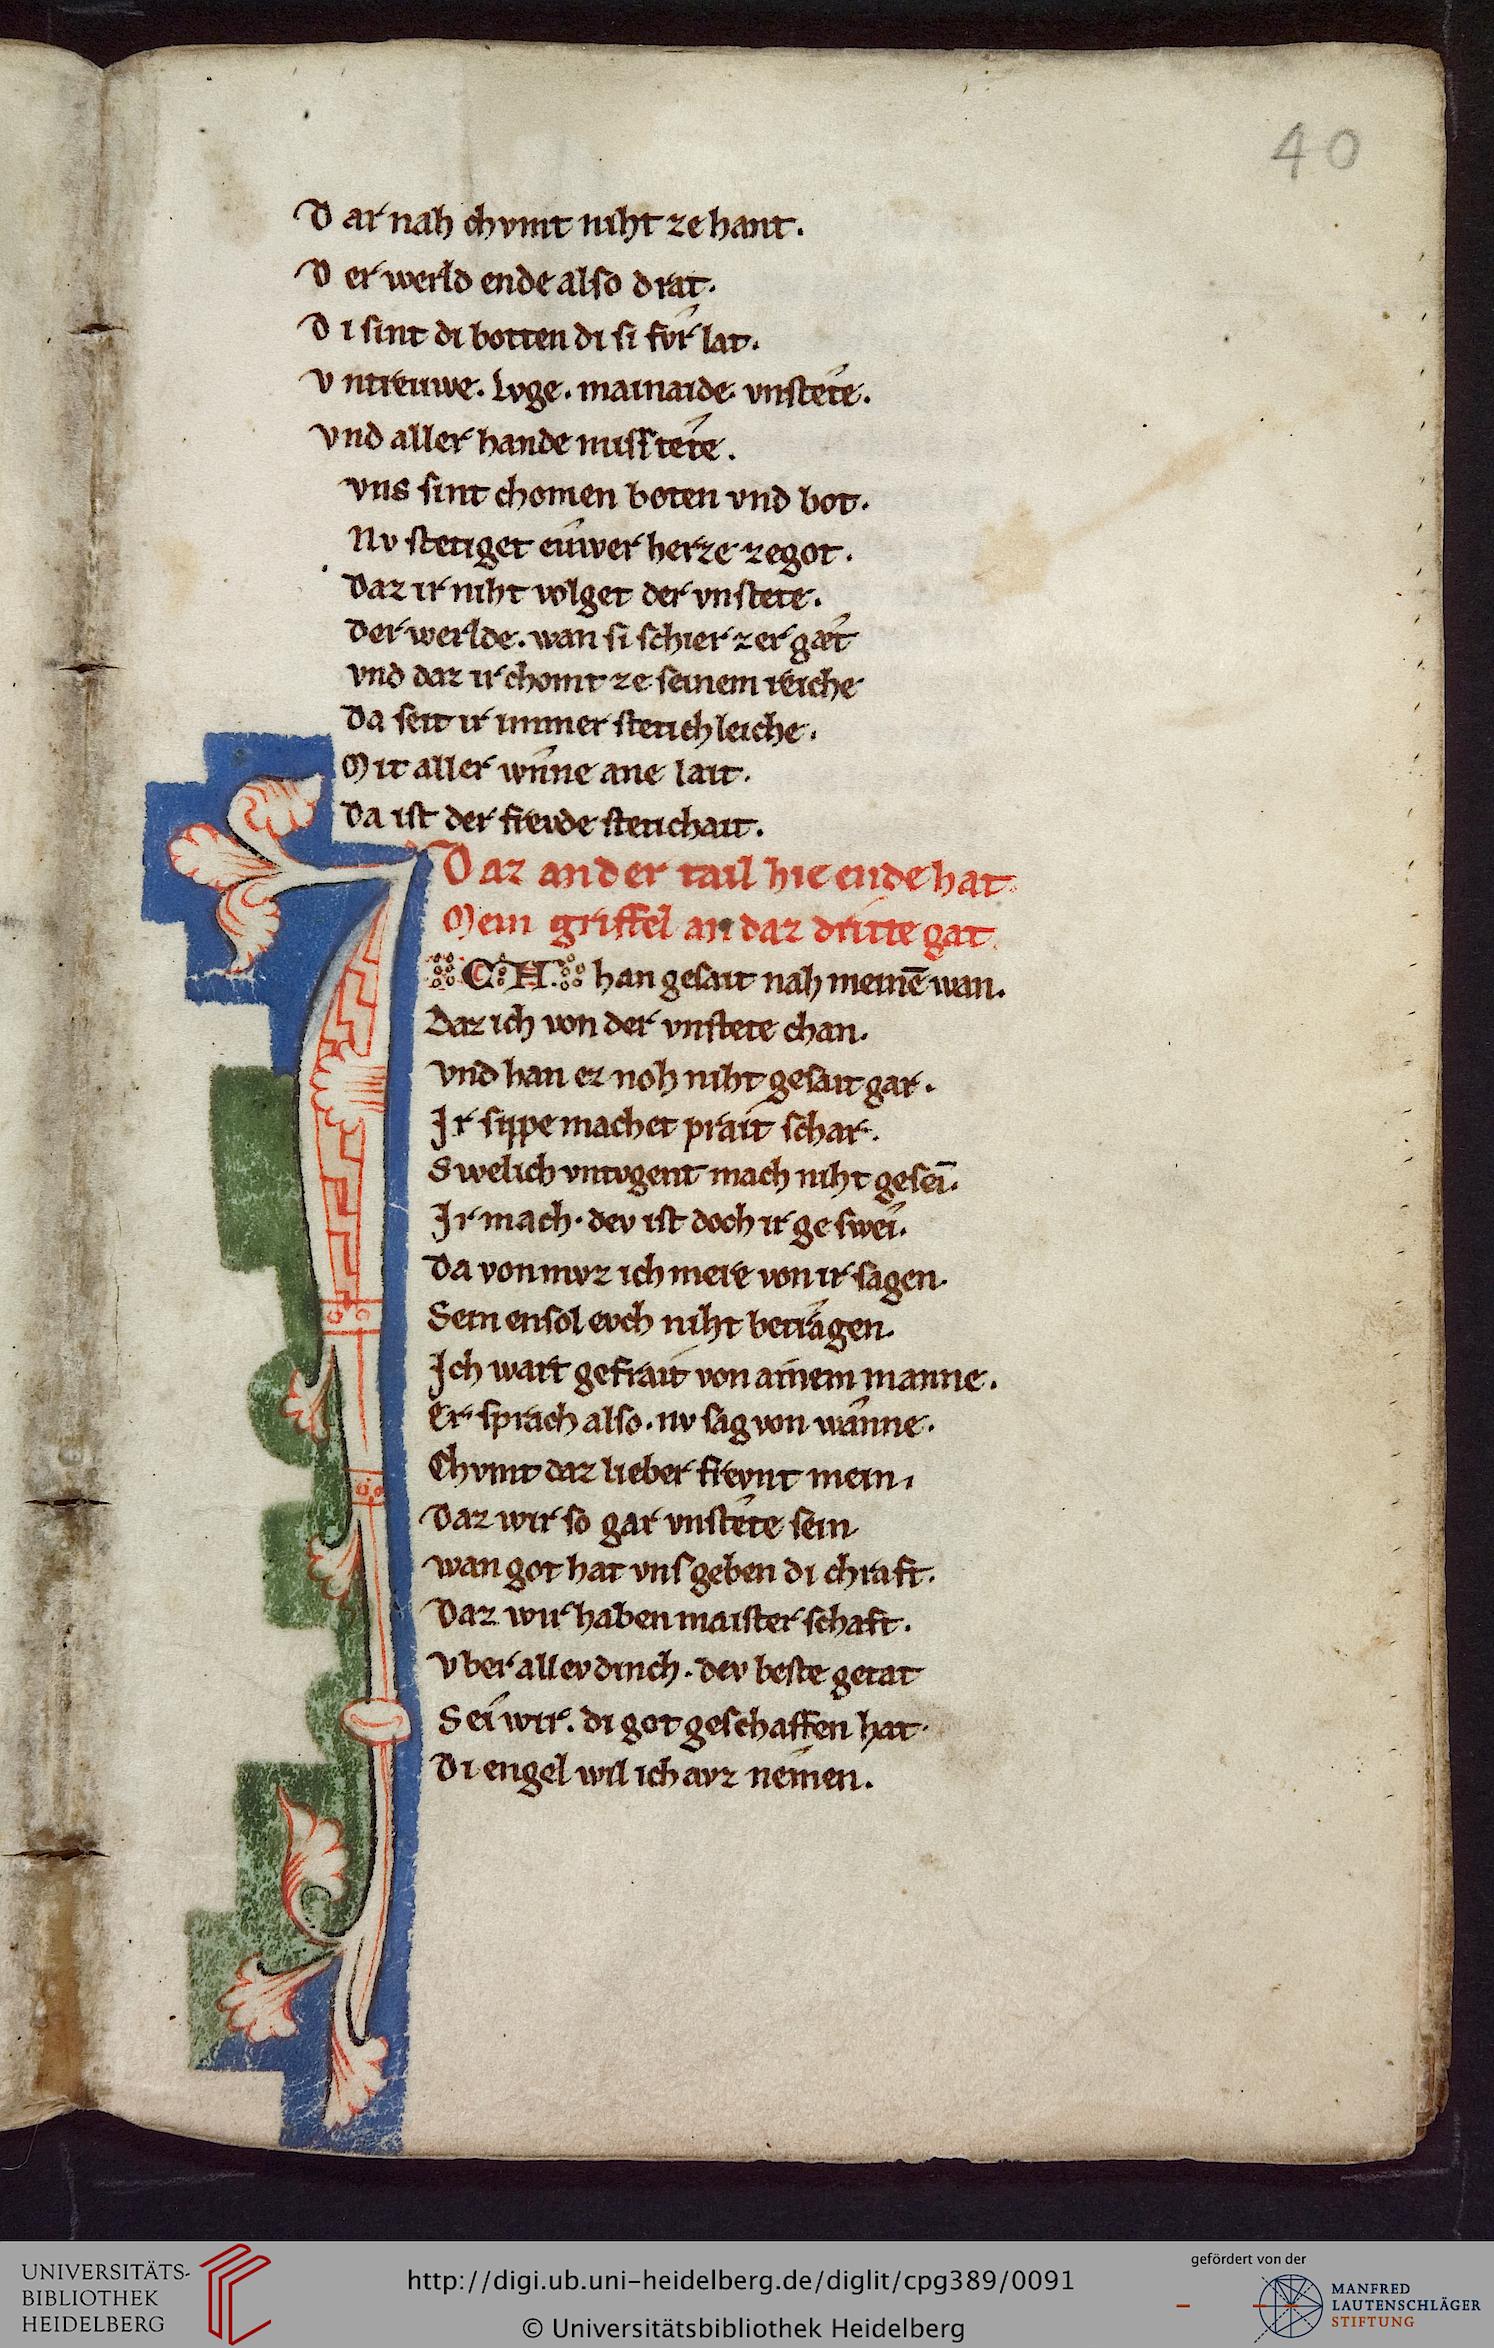 40
D ar nah chvmt niht ze hant.
D er werld ende also drat.
D i sint di botten di si fvr lat.
V ntreuwe. lvge. mainaide. vnstete.
vnd aller hande missetete.
vns sint chomen boten vnd bot.
Nv stetiget euwer herze ze got.
Daz ir niht volget der vnstete.
Der werlde. wan si schier zergæt
vnd daz ir chomt ze seinem reiche
Da seit ir immer stetichleiche.
Mit aller wnne ane lait.
Da ist der frevde stetichait.
Daz ander tail hie ende hat.
Mein griffel an daz dritte gat.
ICH han gesait nah meinē wan.
Daz ich von der vnstete chan.
vnd han ez noh niht gesait gar.
Ir sippe machet prait schar.
Swelich vntvgent mach niht gesei.
Ir mach. dev ist doch ir geswei.
Da von mvz ich mere von ir sagen.
Sein ensol evch niht betragen.
Ich wart gefrait von ainem manne.
Er sprach also. nv sag von wanne.
Chvmt daz lieber frevnt mein.
Daz wir so gar vnstete sein
wan got hat vns geben di chraft.
Daz wir haben maisterschaft.
Vber allev dinch. dev beste getat
Sei wir. di got geschaffen hat.
Di engel wil ich avz nemen.
UNIVERSITÄTS-
BIBLIOTHEK
HEIDELBERG
http://digi.ub.uni-heidelberg.de/diglit/cpg389/0091
© Universitätsbibliothek Heidelberg
gefördert von der
MANFRED
LAUTENSCHLÄGER
STIFTUNG